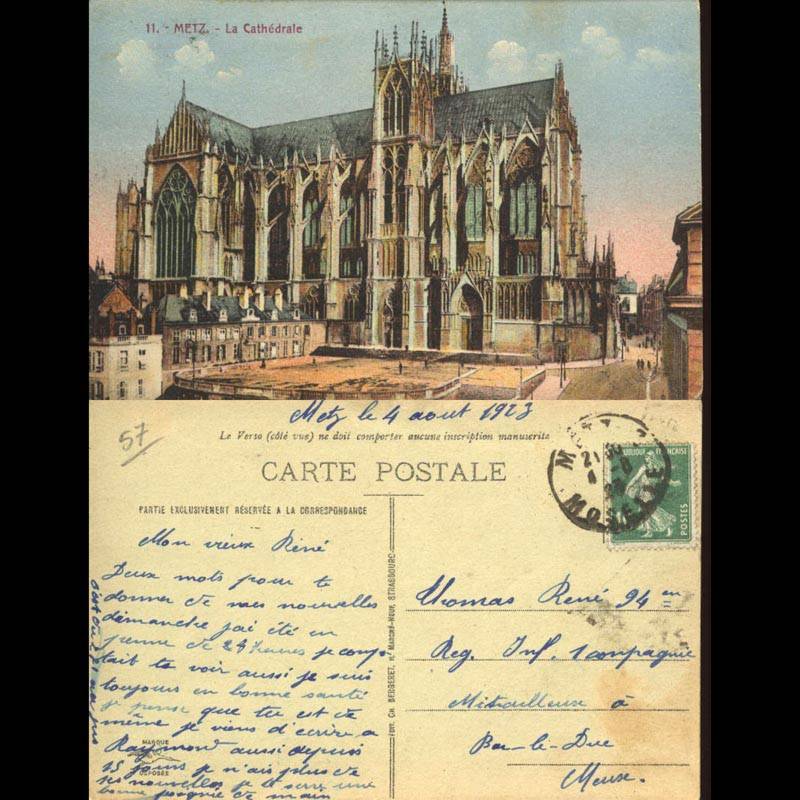 11. - METZ. - La Cathédrale
Metz le 4 aout 1923
57
Le Verso (côté vue) ne doit comporter aucune inscription manuscrite
CARTE POSTALE
PARTIE EXCLUSIVEMENT RÉSERVÉE A LA CORRESPONDANCE
METZ
MOSELLE
RÉPUBLIQUE FRANÇAISE
POSTES
Mon vieux René
Deux mots pour te
donner de mes nouvelles
démanche jai été en
perme de 24 heures je comp-
tait te voir aussi je suis
toujours en bonne santé
je pense que tu est de
même je viens d'ecrire a
Raymond aussi depuis
15 jours je n'ais plus de
ses nouvelles je te serre une
bonne poignée de main
MARQUE
DÉPOSÉE
EDIT. CH. BERGERET, MARCHÉ-NEUF, STRASBOURG
Thomas René 94 em
Reg. Inf. 1 compagnie
Mitrailleuse à
Bar-le-Duc
Meuse.